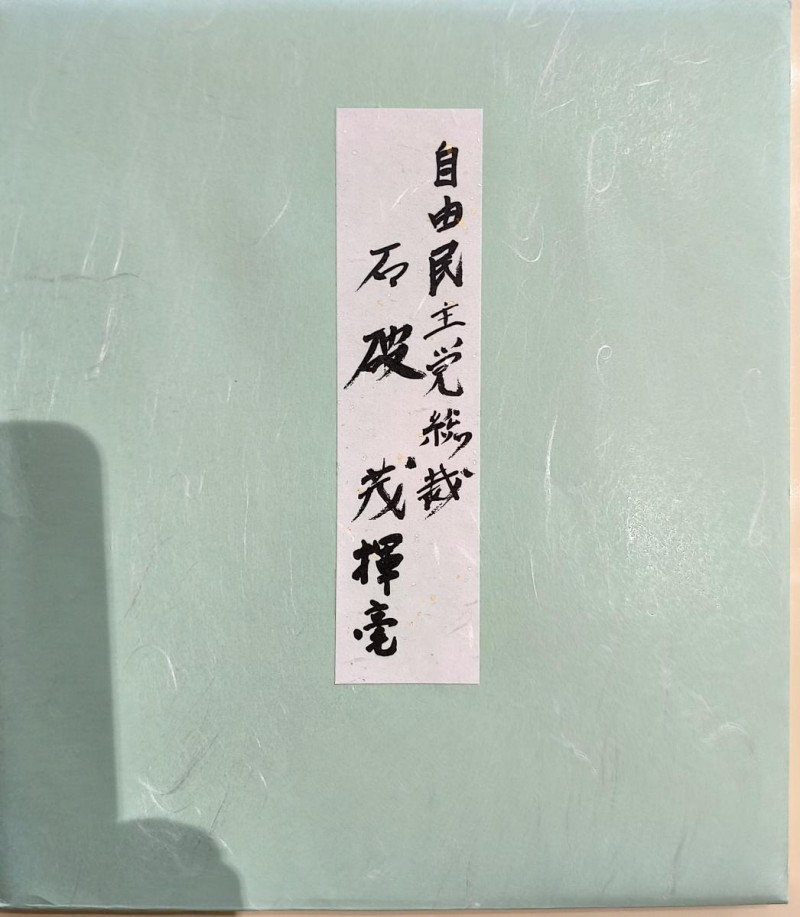 自由民主党総裁
石破茂揮毫